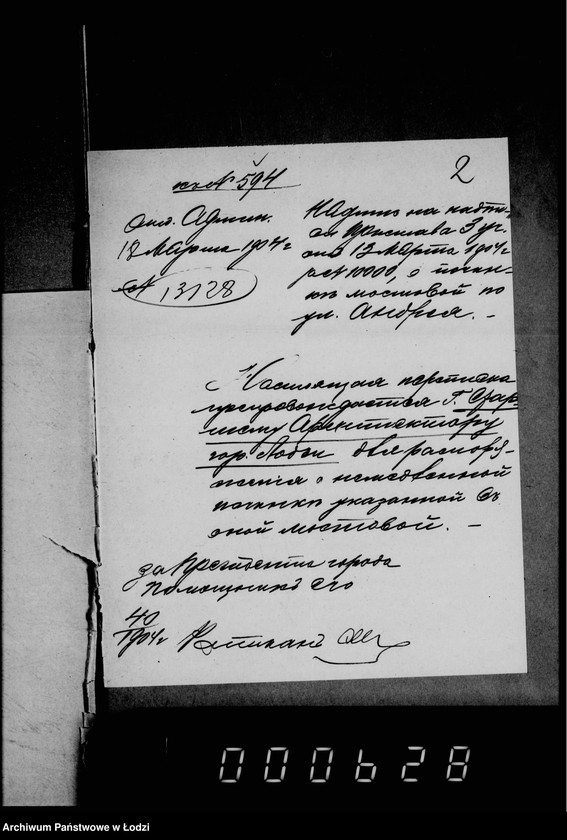 къ № 594
2
Отд. Админ.
18 Марта 1904 г
№ 13128
Надпис на надпи-
си Пристава 3 уч.
отъ 13 Марта 1904 г
за № 10000, о почин-
кѣ мостовой по
ул. Андрея. –
Настоящая переписка
препровождается Г. Стар-
шему Архитектору
гор. Лодзи для распоря-
женія о немедленной
починкѣ указанной въ
оной мостовой. –
за Президента города
Помощникъ его
40
1904 г
000628
Archiwum Państwowe w Łodzi